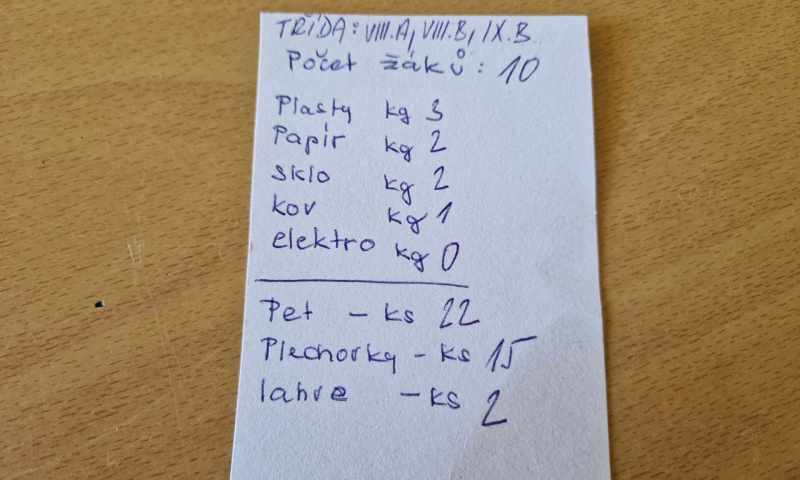 TŘÍDA: VIII.A, VIII.B, IX.B
Počet žáků: 10
Plasty kg 3
Papír kg 2
sklo kg 2
kov kg 1
elektro kg 0
Pet - ks 22
Plechovky - ks 15
lahve - ks 2